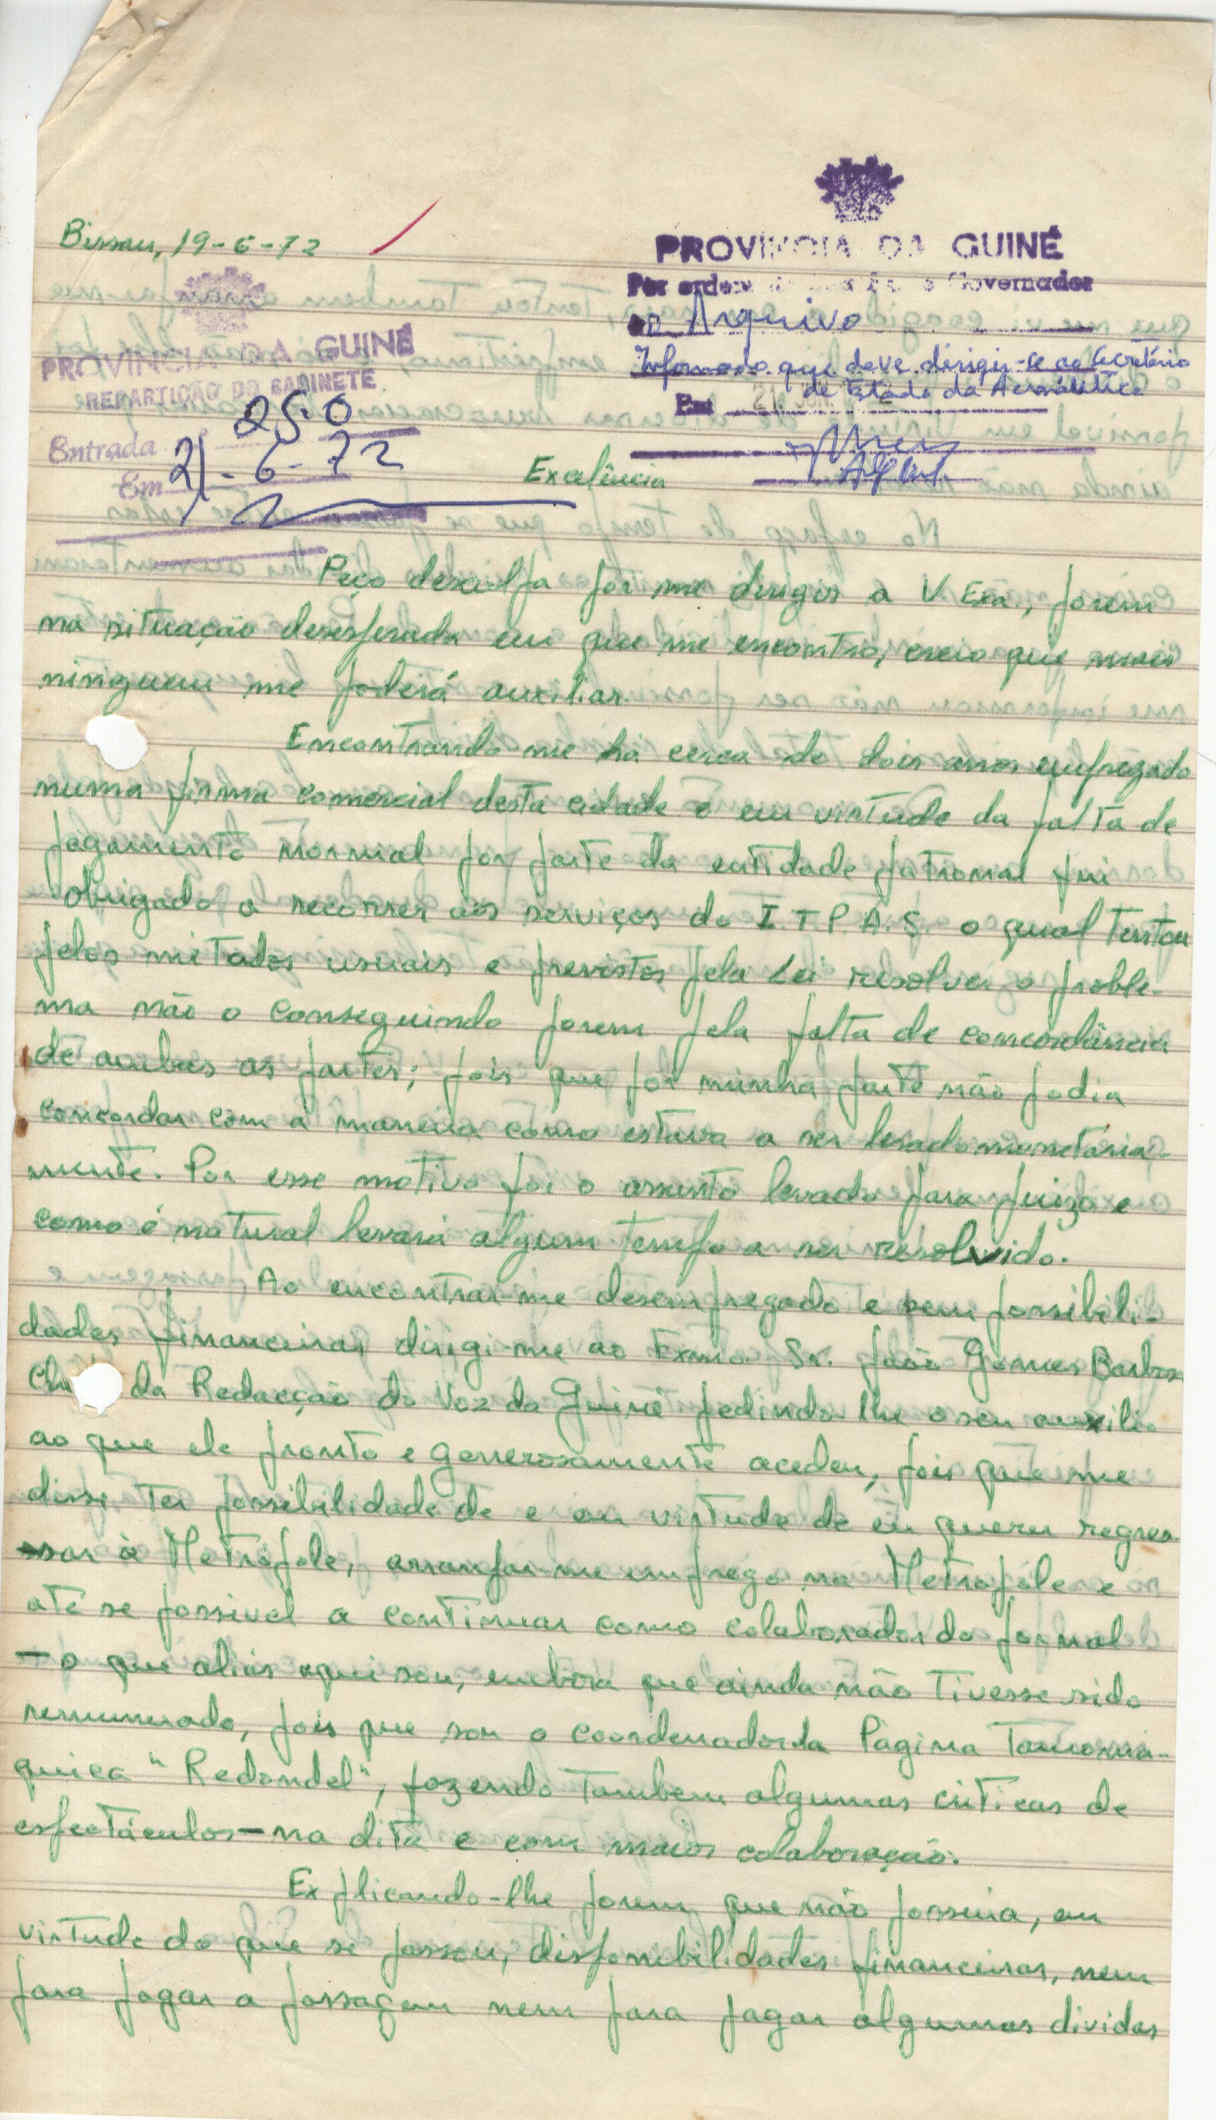 Bissau, 19-6-72
PROVINCIA DA GUINÉ
Por ordem de Sua Exª o Governador
ao Arquivo
Informado que deve dirigir-se ao Secretário
de Estado da Aeronáutica
Em
PROVINCIA DA GUINÉ
REPARTIÇÃO DO GABINETE
250
Entrada
Em 21-6-72
Excelência
Peço desculpa por me dirigir a V. Exa, porem
na situação desesperada em que me encontro, creio que mais
ninguem me poderá auxiliar.
Encontrando me há cerca de dois anos empregado
numa firma comercial desta cidade e em virtude da falta de
pagamento normal por parte da entidade patronal fui
obrigado a recorrer aos serviços do I T P A. S. o qual tentou
pelos metodos usuais e previstos pela Lei resolver o proble-
ma não o conseguindo porem pela falta de concordância
de ambas as partes; pois que por minha parte não podia
concordar com a maneira como estava a ser lesado monetária-
mente. Por esse motivo foi o assunto levado para Juizo e
como é natural levará algum tempo a ser resolvido.
Ao encontrar-me desempregado e sem possibili-
dades financeiras dirigi-me ao Exmo. Sr. João Gomes Barbosa
da Redacção do Voz da Guiné pedindo lhe o seu auxilio
ao que ele pronto e generosamente acedeu, pois que me
disse ter possibilidade de e em virtude de eu querer regres-
sar à Metrópole, arranjar-me emprego na Metropole e
até se possivel a continuar como colaborador do jornal
- o que aliás aqui sou, embora que ainda não tivesse sido
remunerado, pois que sou o coordenador da Página Tauroma-
quica "Redondel", fazendo tambem algumas criticas de
espectáculos - na dita e com maior colaboração.
Explicando-lhe porem que não possuia, em
virtude do que se passou, disponibilidades financeiras, nem
para pagar a passagem nem para pagar algumas dividas